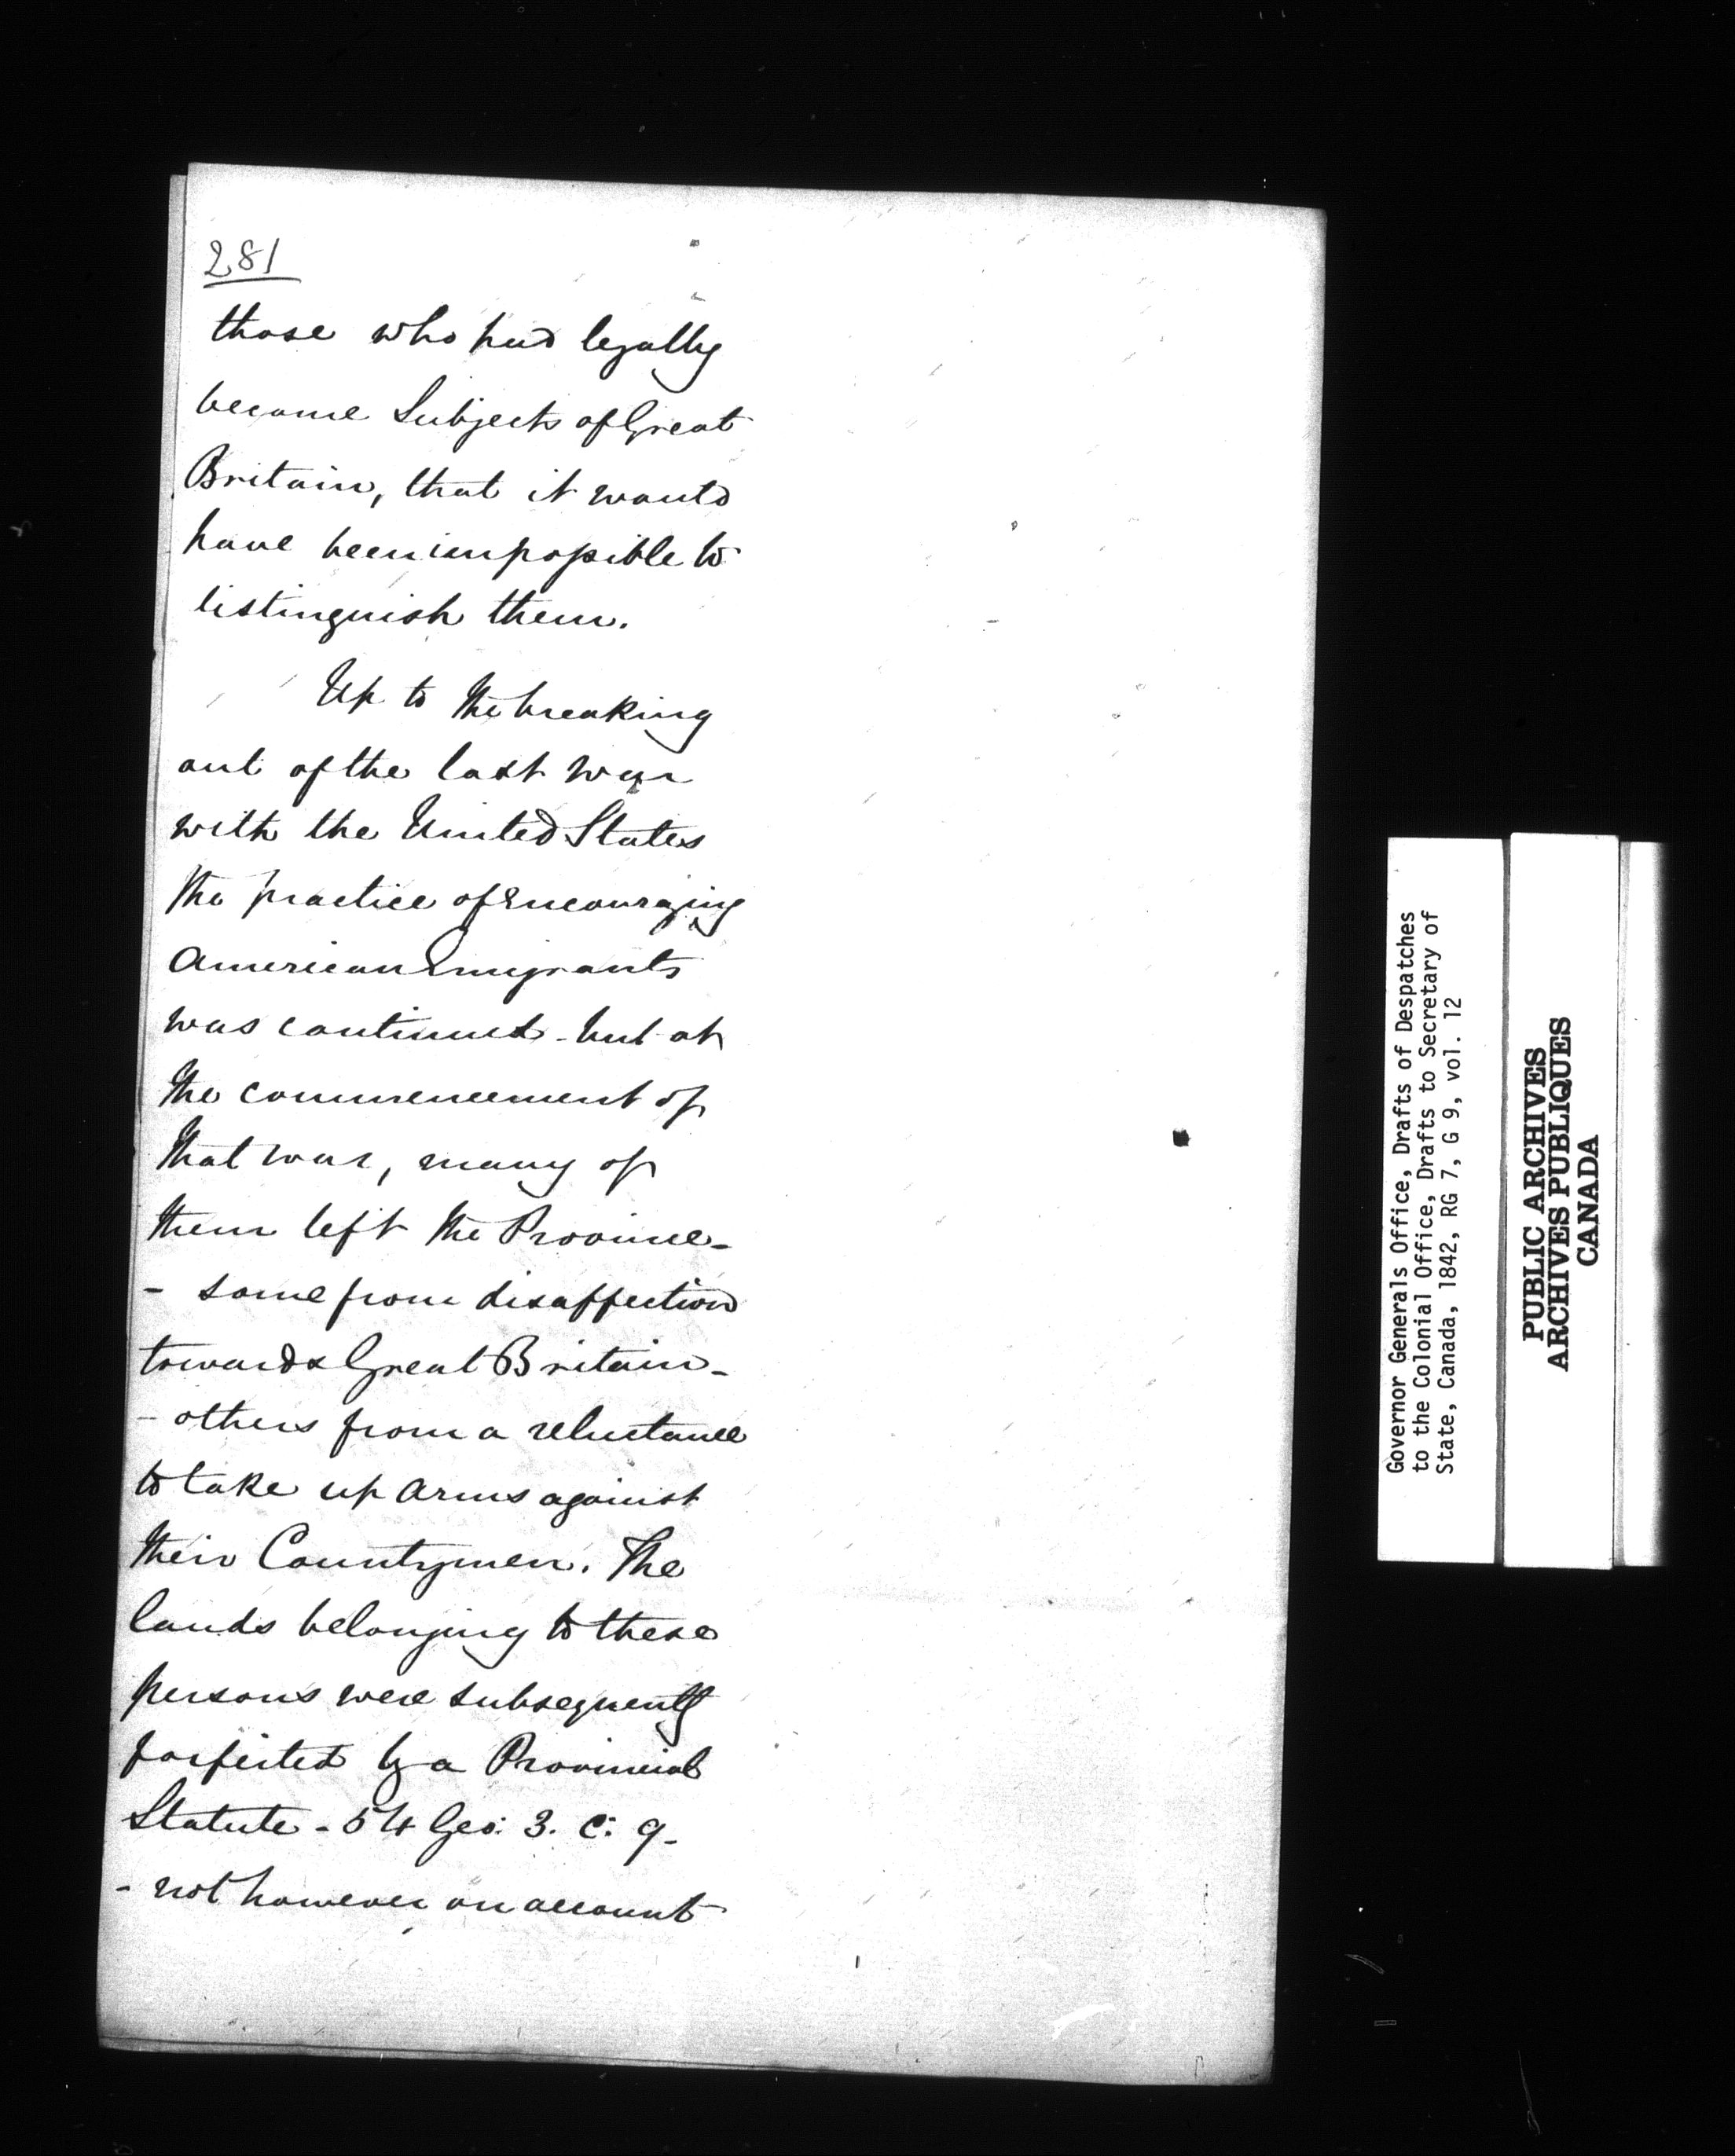 281
those who had legally
become Subjects of Great
Britain, that it would
have been impossible to
distinguish them.
Up to the breaking
out of the last War
with the United States
the practice of encouraging
American Emigrants
was continued - but at
the commencement of
that war, many of
them left the Province -
- some from disaffection
towards Great Britain -
- others from a reluctance
to take up arms against
their Countrymen. The
lands belonging to these
persons were subsequently
forfeited by a Provincial
Statute - 54 Geo: 3. C: 9 -
- not however on account
Governor Generals Office, Drafts of Despatches
to the Colonial Office, Drafts to Secretary of
State, Canada, 1842, RG 7, G 9, vol. 12
PUBLIC ARCHIVES
ARCHIVES PUBLIQUES
CANADA